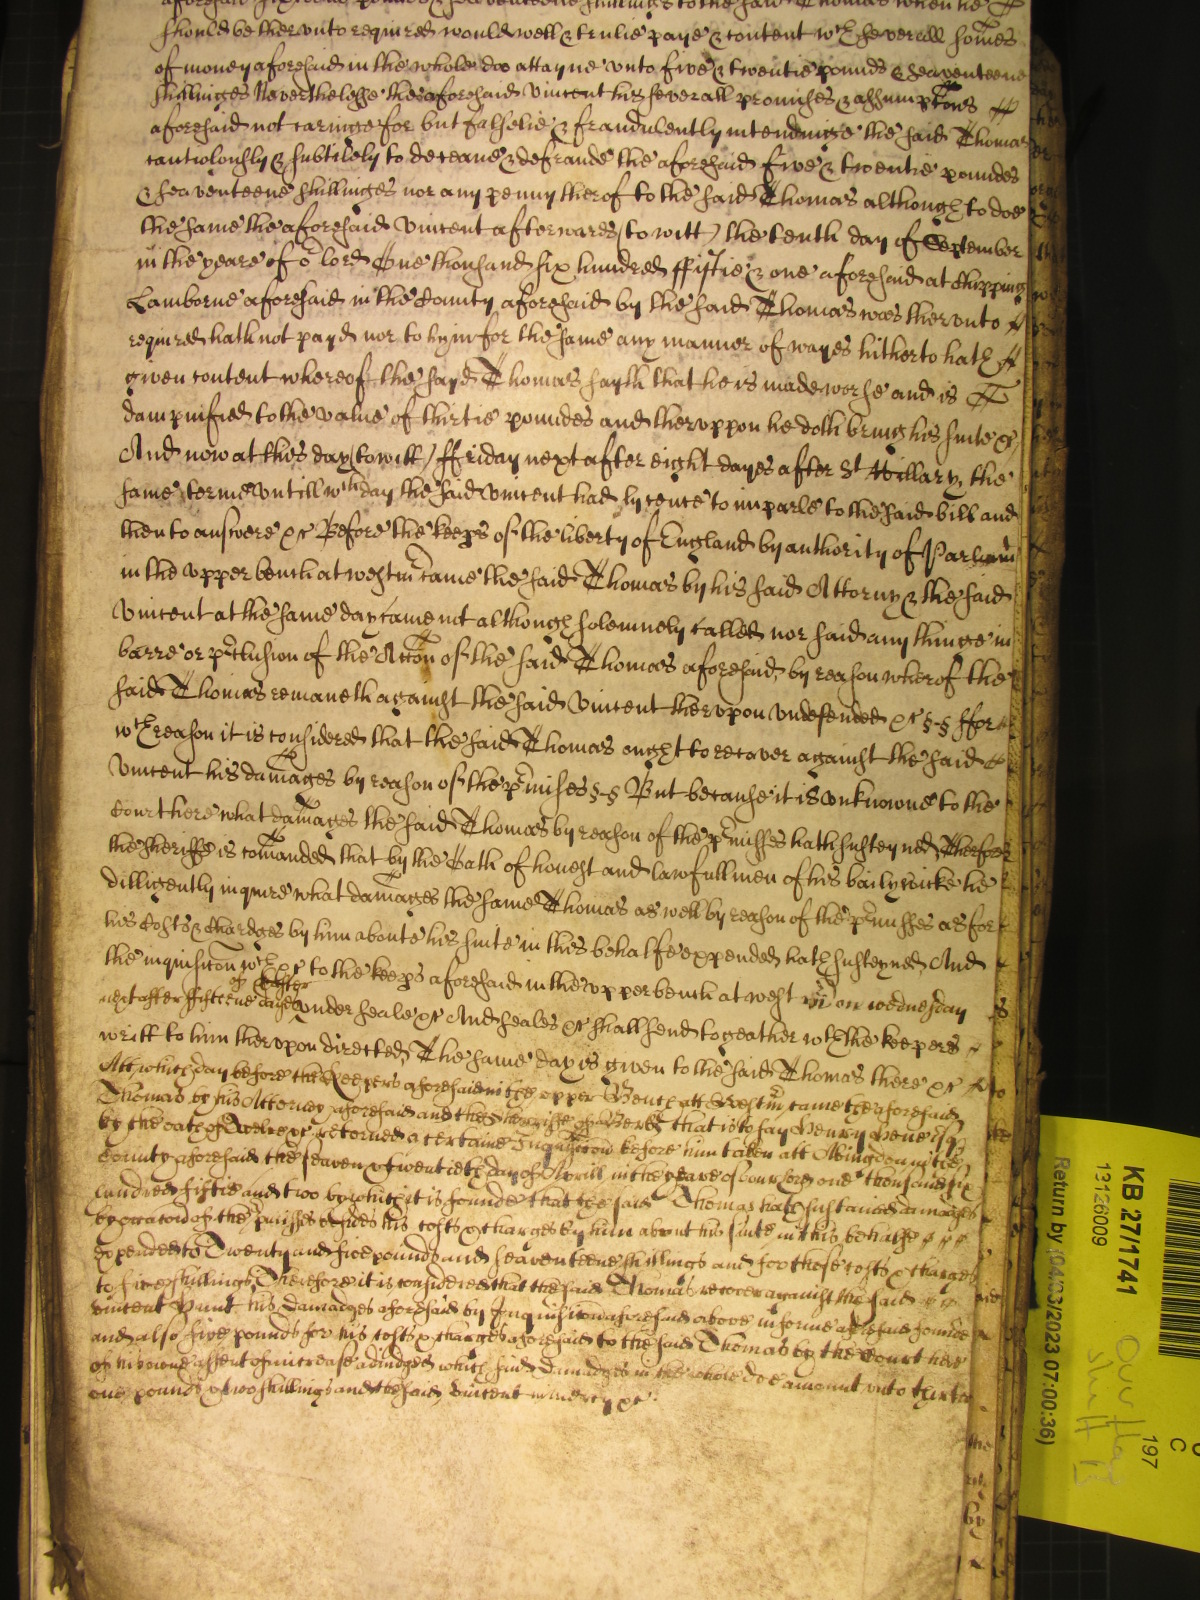 aforesaid sixteene pounds & seaventeene shillings to the said Thomas when he
should be thervnto required would well & trulie paye & content wch severall somes
of money aforesaid in the whole doe attayne vnto five & twentie pounds & seaventeene
shillinges Neverthelesse the aforesaid Vincent his severall promises & assumptons
aforesaid not caringe for but falselie & fraudulently intendinge the said Thomas
cautiolously & subtilely to deceave & defraude the aforesaid five & twentie poundes
& seaventeene shillinges nor any penny therof to the said Thomas although to doe
the same the aforesaid Vincent afterwards (to witt) the tenth day of September
in the yeare of or lord One thousand six hundred ffiftie & one aforesaid at Chipping
Lamborne aforesaid in the County aforesaid by the said Thomas was thervnto
required hath not payd nor to hym for the same any manner of wayes hitherto hath
given content whereof the sayd Thomas sayth that he is made worse and is
dampnified to the value of thirtie poundes and thervppon he doth bring his suite &c
And now at this day (to witt) ffriday next after eight dayes after St Hillary, the
same terme vntill wch day the said Vincent had lycence to imparle to the said bill and
then to answere &c Before the keeps of the liberty of England by authority of Parliamt
in the vpper bench at westmr came the said Thomas by his said Attorny & the said
Vincent at the same day came not although solemnely called nor said any thinge in
barre or pclusion of the Accon of the said Thomas aforesaid, by reason wherof the
said Thomas remaneth against the said Vincent thervpon vndefended &c §-§ ffor
wch reason it is considered that the said Thomas ought to recover against the said
Vincent his damages by reason of the pmises §-§ But because it is vnknowne to the
Court here what damages the said Thomas by reason of the pmisses hath susteyned Therfore
the sheriffe is comanded that by the Oath of honest and lawfull men of his bailywicke he
dilligently inquire what damages the same Thomas as well by reason of the pmisses as for
his Costs & Chardges by him aboute his suite in this behalfe expended hath susteyned And
the inquisicon wch &c to the keeps aforesaid in the vpper bench at westmr on wednesday
next after fifteene dayes of Easter vnder seale &c And seales &c shall send togeather wth the keepers
writt to him thervpon directed, The same day is given to the said Thomas there &c
Att which day before the Keepers aforesaid in the vpper Bench att Westmr came the aforesaid
Thomas by his Attorney aforesaid and the Sherriffe of Berks that is to say Henry
by the oath of Twelve &c retorned a certaine Inquisicon before him taken att Abingdon in the
County aforesaid the seaven & twentieth day of Aprill in the yeare of our lord one thousand six
hundred fiftie and two by which it is founde that the said Thomas hath sustained damages
by occasion of the pmisses besides his costs & charges by him about his suite in this behalfe
expended to Twenty and five pounds and seaventeene shillings and for those costs & charges
to shillings, Therefore it is considered that the said Thomas recover against the said
Vincent his damadges aforesaid by Inquisicon aforesaid above in forme aforesaid founde
and also five pounds for his costs & charges aforesaid to the said Thomas by the Court here
of his owne assent of increase adiudged which said damadges in the whole doe amount vnto thirtie
one pounds & two shillings and the said Vincent in mercy &c.
KB 27/1741
13126009
Return by (04/03/2023 07:00:36)
197
C